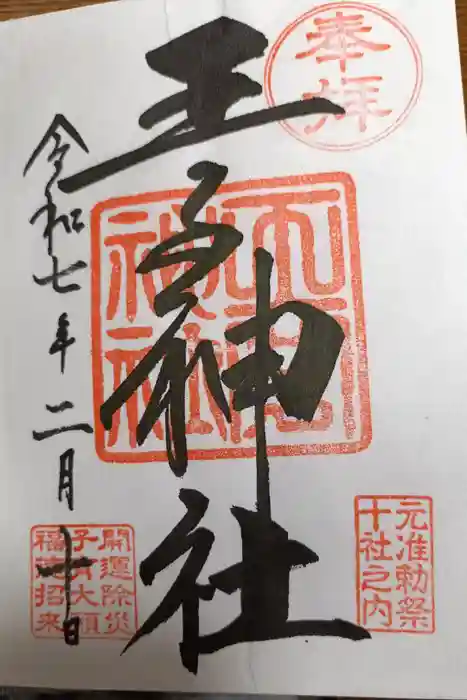 奉拝
元准勅祭
十社之内
王子神社
令和七年二月十日
開運除災
子育大願
招来